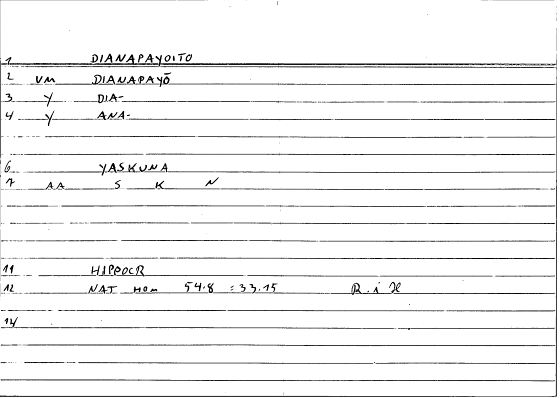 1 DIANAPAYOITO
2 VM DIANAPAYŌ
3 Y DIA-
4 Y ANA-
6 YASKUNA
7 AA S K N
11 HIPPOCR
12 NAT HOM 54.8 = 33.15
14